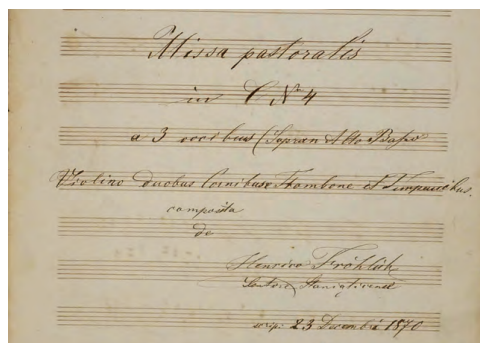 Missa pastoralis
in C Nº 4
a 3 vocibus (Sopran Alto Basso
Violino duobus Cornibus Trombone et Timpanibus.
composita
de
Henrico Fröhlich
scrip. 23 Decembri 1870